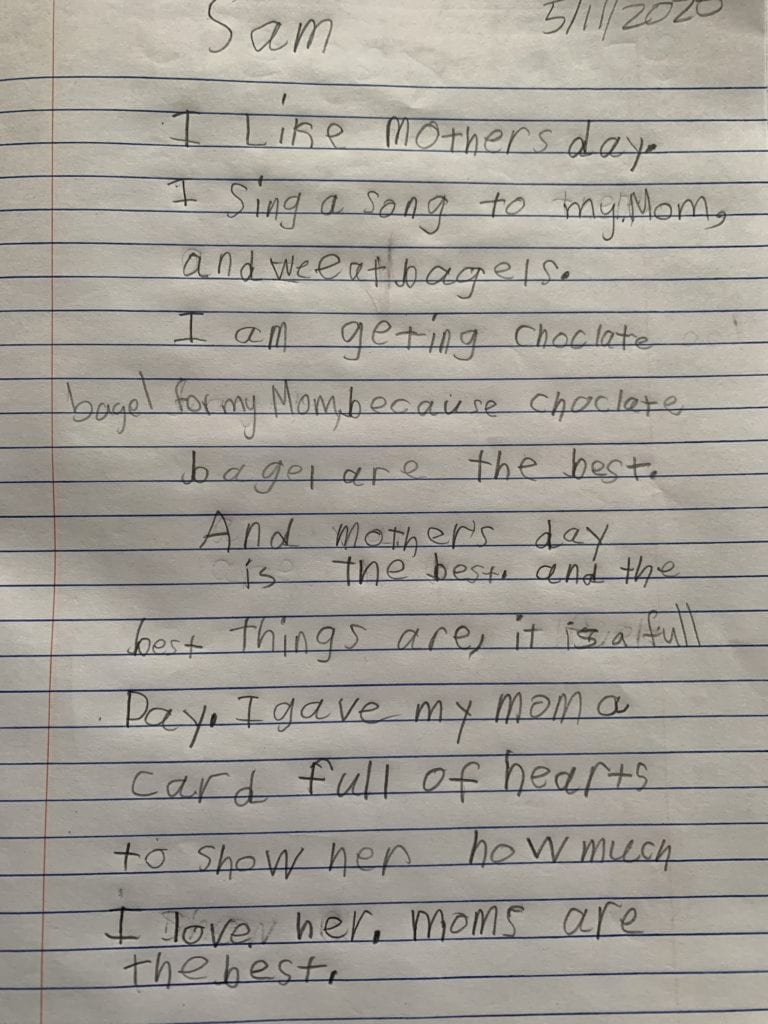 Sam 5/11/2020
I Like mothers day.
I Sing a song to my Mom,
and we eat bagels.
I am geting choclate
bagel for my Mom, because choclate
bagel are the best.
And mother's day
is the best. and the
best things are, it is a full
Day. I gave my mom a
card full of hearts
to show her how much
I love her. moms are
the best.